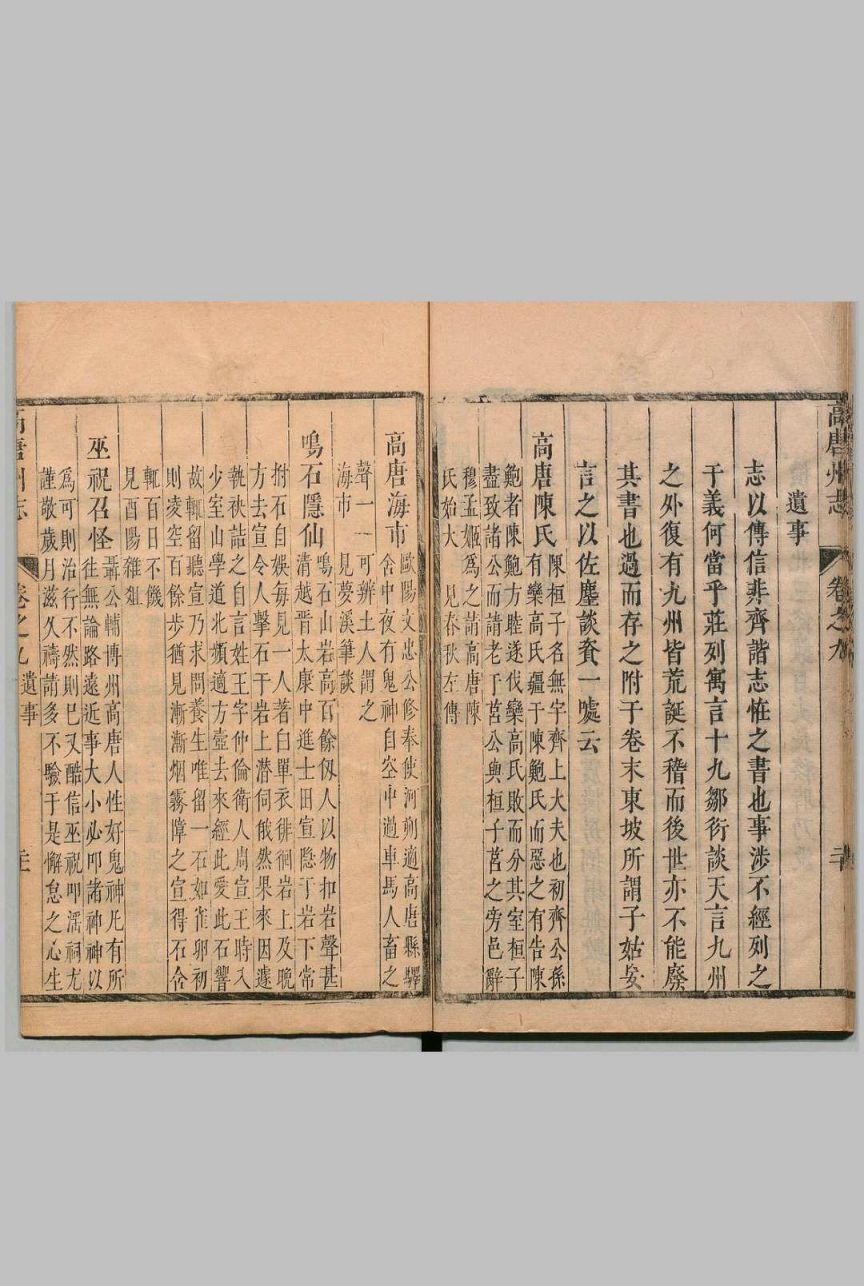 高唐州志 卷之九
遺事
志以傳信非齊諧志恠之書也事涉不經列之
于義何當乎莊列寓言十九鄒衍談天言九州
之外復有九州皆荒誕不稽而後世亦不能廢
其書也過而存之附于卷末東坡所謂子姑妄
言之以佐塵談資一噱云
高唐陳氏
陳桓子名無宇齊上大夫也初齊公孫
有欒高氏彊于陳鮑氏而惡之有告陳
鮑者陳鮑方睦遂伐欒高氏敗而分其室桓子
盡致諸公而請老于莒公與桓子莒之旁邑辭
穆孟姬爲之請高唐陳
氏始大 見春秋左傳
高唐海市
歐陽文忠公修奉使河朔適高唐縣驛
舍中夜有鬼神自空中過車馬人畜之
聲一一可辨土人謂之
海市 見夢溪筆談
鳴石隱仙
鳴石山岩高百餘仭人以物扣岩聲甚
清越晋太康中進士田宣隐于岩下常
拊石自娛每見一人著白單衣徘徊岩上及晚
方去宣令人擊石于岩上潜伺俄然果來因遽
執袂詰之自言姓王字仲倫衛人周宣王時入
少室山學道北頻適方壺去來經此愛此石響
故輒留聽宣乃求問養生唯留一石如雀卵初
則凌空百餘步猶見漸漸烟霧障之宣得石含
輒百日不饑
見酉陽雜俎
巫祝召怪
聶公輔博州高唐人性好鬼神凡有所
徃無論路遠近事大小必叩諸神神以
爲可則治行不然則巳又酷信巫祝叩滛祠尤
謹敬歲月滋久禱請多不驗于是懈怠之心生
高唐州志 卷之九 遺事